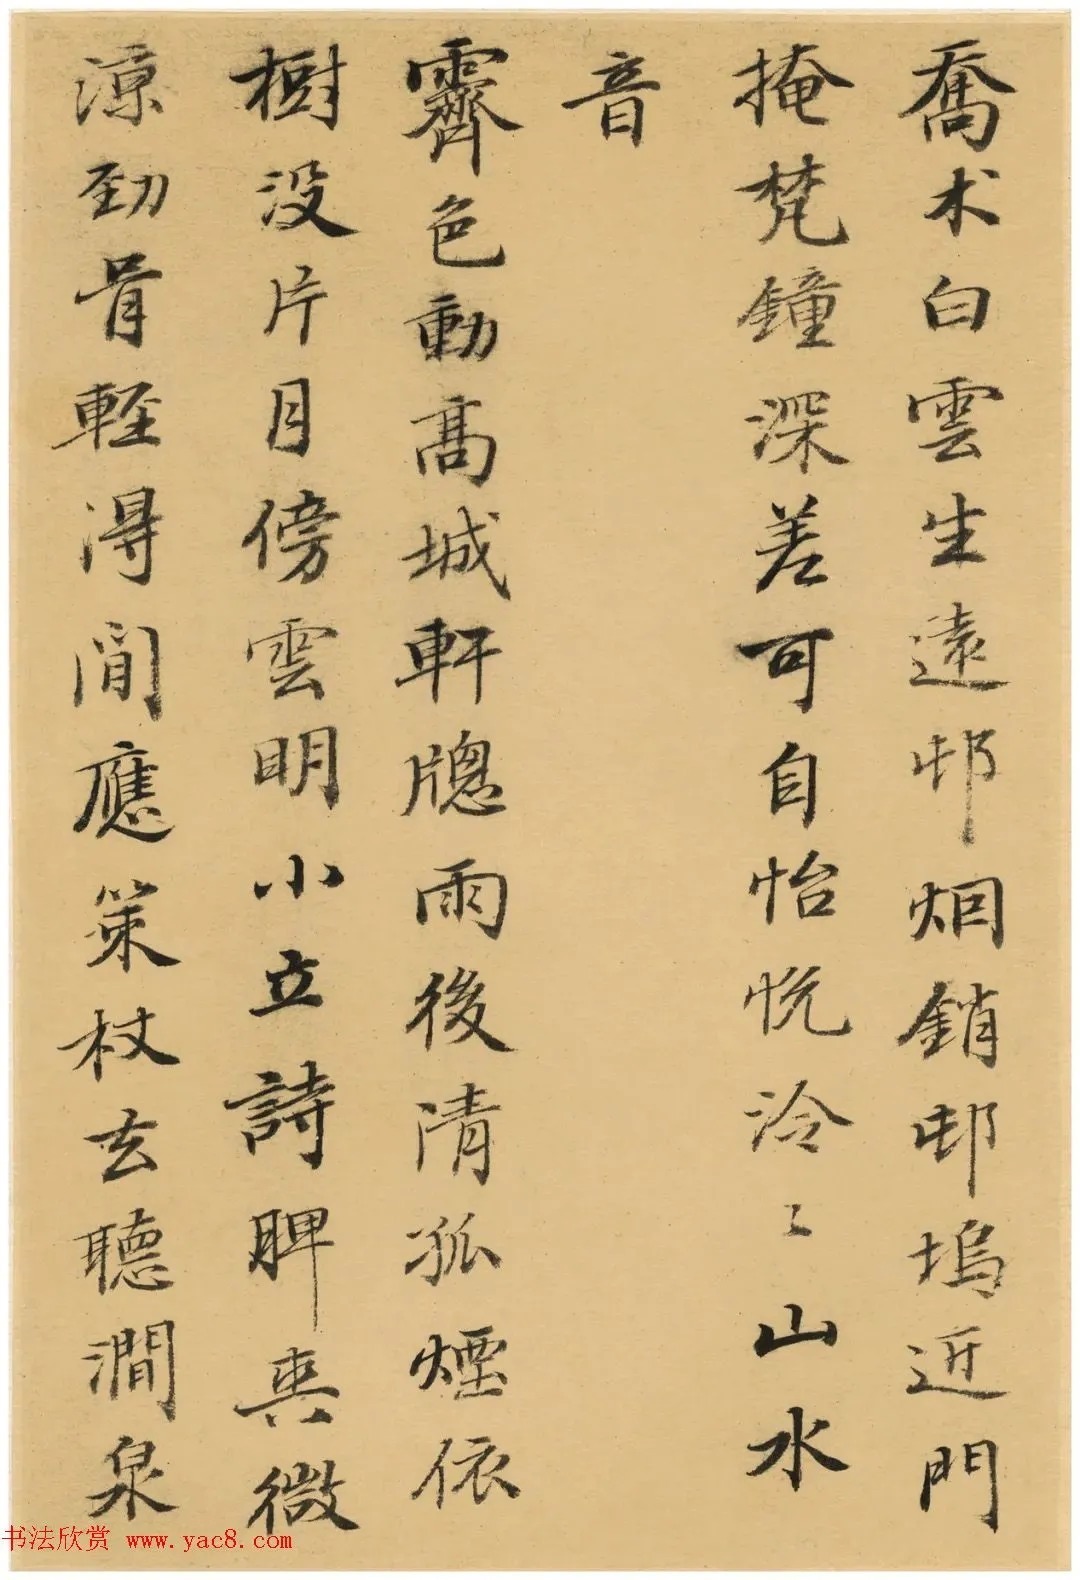 喬木白雲生遠邨烟銷邨塢近門
掩梵鐘深差可自怡悦泠〻山水
音
霽色動高城軒牎雨後清孤煙依
樹没片月傍雲明小立詩脾爽微
涼勁骨輕得閒應策杖去聽澗泉
书法欣赏 www.yac8.com